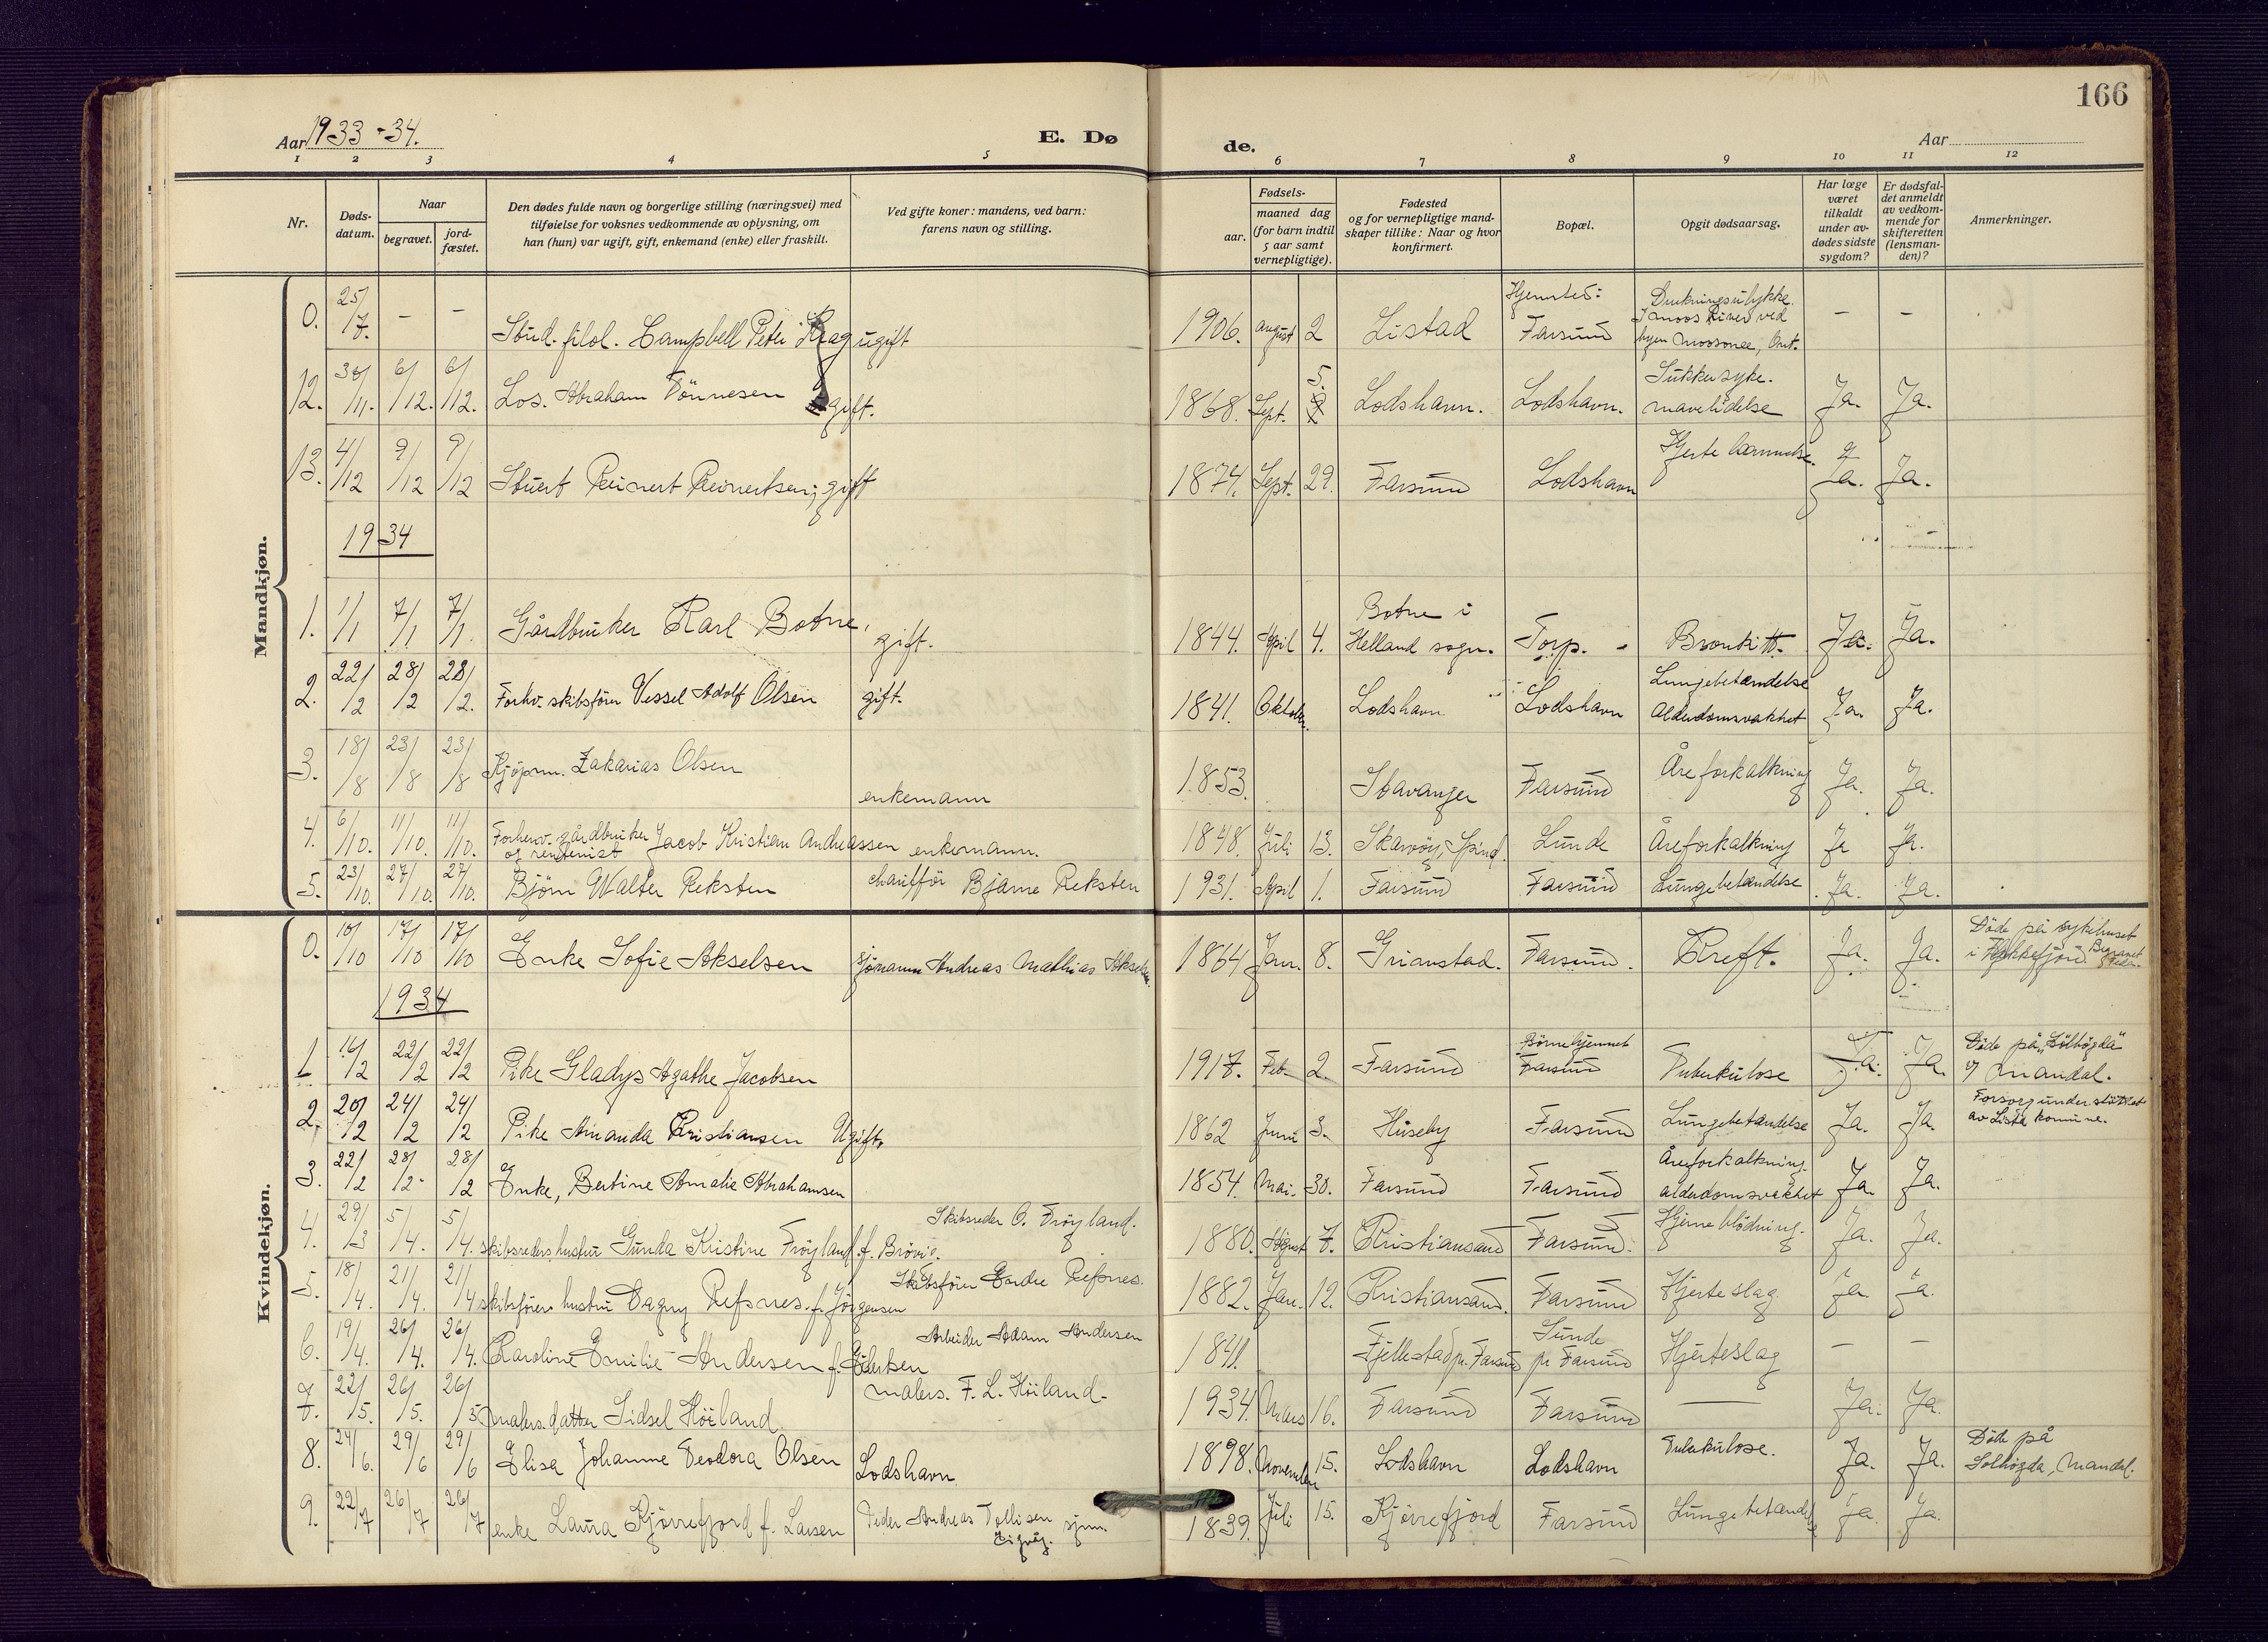 166
Aar 1933-34.
E. Døde.
Aar
1 2 3 4 5 6 7 8 9 10 11 12
Nr.
Døds-
datum.
Naar
begravet.
jord-
fæstet.
Den dødes fulde navn og borgerlige stilling (næringsvei) med
tilføielse for voksnes vedkommende av oplysning, om
han (hun) var ugift, gift, enkemand (enke) eller fraskilt.
Ved gifte koner: mandens, ved barn:
farens navn og stilling.
Fødsels-
aar.
maaned dag
(for barn indtil
5 aar samt
vernepligtige).
Fødested
og for vernepligtige mand-
skaper tillike: Naar og hvor
konfirmert.
Bopæl.
Opgit dødsaarsag.
Har læge
været
tilkaldt
under av-
dødes sidste
sygdom?
Er dødsfal-
det anmeldt
av vedkom-
mende for
skifteretten
(lensman-
den)?
Anmerkninger.
Mandkjøn.
0. 25/7. – – Stud. filol. Campbell Peter Krag ugift 1906. august 2 Listad Hjemsted: Farsund Drukningsulykke. I moos River ved byen Moosonee, Ont. – –
12. 30/11. 6/12. 6/12. Los. Abraham Tönnesen gift. 1868. Sept. 5. Lodshavn. Lodshavn. Sukkersyke. mavelidelse Ja. Ja.
13. 4/12 9/12 9/12 Stuert Reinert Reinertsen, gift 1874. Sept. 29. Farsund Lodshavn Hjerte lammelse. Ja. Ja.
1934
1. 1/1 7/1 7/1. Gårdbruker Karl Botne, gift. 1844. April 4. Botne i Helland sogn. Torp. Bronkitt. Ja. Ja.
2. 22/2 28/2 28/2. Forhv. skibsförer Vessel Adolf Olsen gift. 1841. Oktober. Lodshavn Lodshavn Lungebetændelse Alderdomsvakhet Ja. Ja.
3. 18/8 23/8 23/8 Kjöpm. Zakarias Olsen enkemann 1853. Stavanger Farsund Åreforkalkning Ja. Ja.
4. 6/10. 11/10. 11/10. Forhenv. gårdbruker og rentenist Jacob Kristian Andreassen enkemann. 1848. Juli 13. Skarvöy, Spind. Lunde Åreforkalkning Ja Ja.
5. 23/10. 27/10. 27/10. Björn Walter Reksten chaufför Bjarne Reksten 1931. April 1. Farsund Farsund Lungebetændelse Ja. Ja.
Kvindekjøn.
0. 10/10 17/10 17/10 Enke Sofie Akselsen sjömann Andreas Mathias Akselsen. 1864 Jan. 8. Grimstad. Farsund. Kreft. Ja. Ja. Döde på sykehuset i Flekkefjord. Begravet
1934
1 16/2 22/2 22/2 Pike Gladys Agathe Jacobsen 1917. Feb 2. Farsund Börnehjemmet Farsund Tuberkulose Ja. Ja. Döde på "Solhögda" Mandal.
2. 20/2 24/2 24/2 Pike Amanda Kristiansen Ugift. 1862 Juni 3. Huseby Farsund Lungebetændelse Ja. Ja. Forsorgunderstöttet av Lista komune.
3. 22/2 28/2 28/2 Enke, Bertine Amalie Abrahamsen 1854. Mai. 30. Farsund Farsund Åreforkalkning. alderdomsvakhet Ja. Ja.
4. 29/3 5/4. 5/4. skibsreders hustru Gunda Kristine Fröyland f. Brövig. Skibsreder O. Fröyland. 1880. August 7. Kristiansand Farsund. Hjerneblödning. Ja. Ja.
5. 18/4. 21/4. 21/4 skibsförers hustru Dagny Refsnes. f. Jörgensen Skibsförer Endre Refsnes. 1882. Jan. 12. Kristiansand. Farsund Hjerteslag Ja Ja.
6. 19/4. 26/4. 26/4. Karoline Emilie Andersen f. Arbeider Adam Andersen 1841. Fjellestad pr. Farsund Sunde pr Farsund Hjerteslag – –
7. 22/5. 26/5. 26/5 malers. datter Sidsel Höiland malers. F. L. Höiland 1934. Mars 16. Farsund Farsund — Ja. Ja.
8. 24/6. 29/6 29/6 Elisa Johanne Teodora Olsen Lodshavn 1898. November 15. Lodshavn Lodshavn Tuberkulose. Ja. Ja. Döde på Solhögda, Mandal.
9. 22/7 26/7 26/7 enke Laura Kjörrefjord f. Larsen Peder Andreas Tollisen sjm. 1839. Juli 15. Kjörrefjord Farsund Lungebetændelse Ja. Ja.